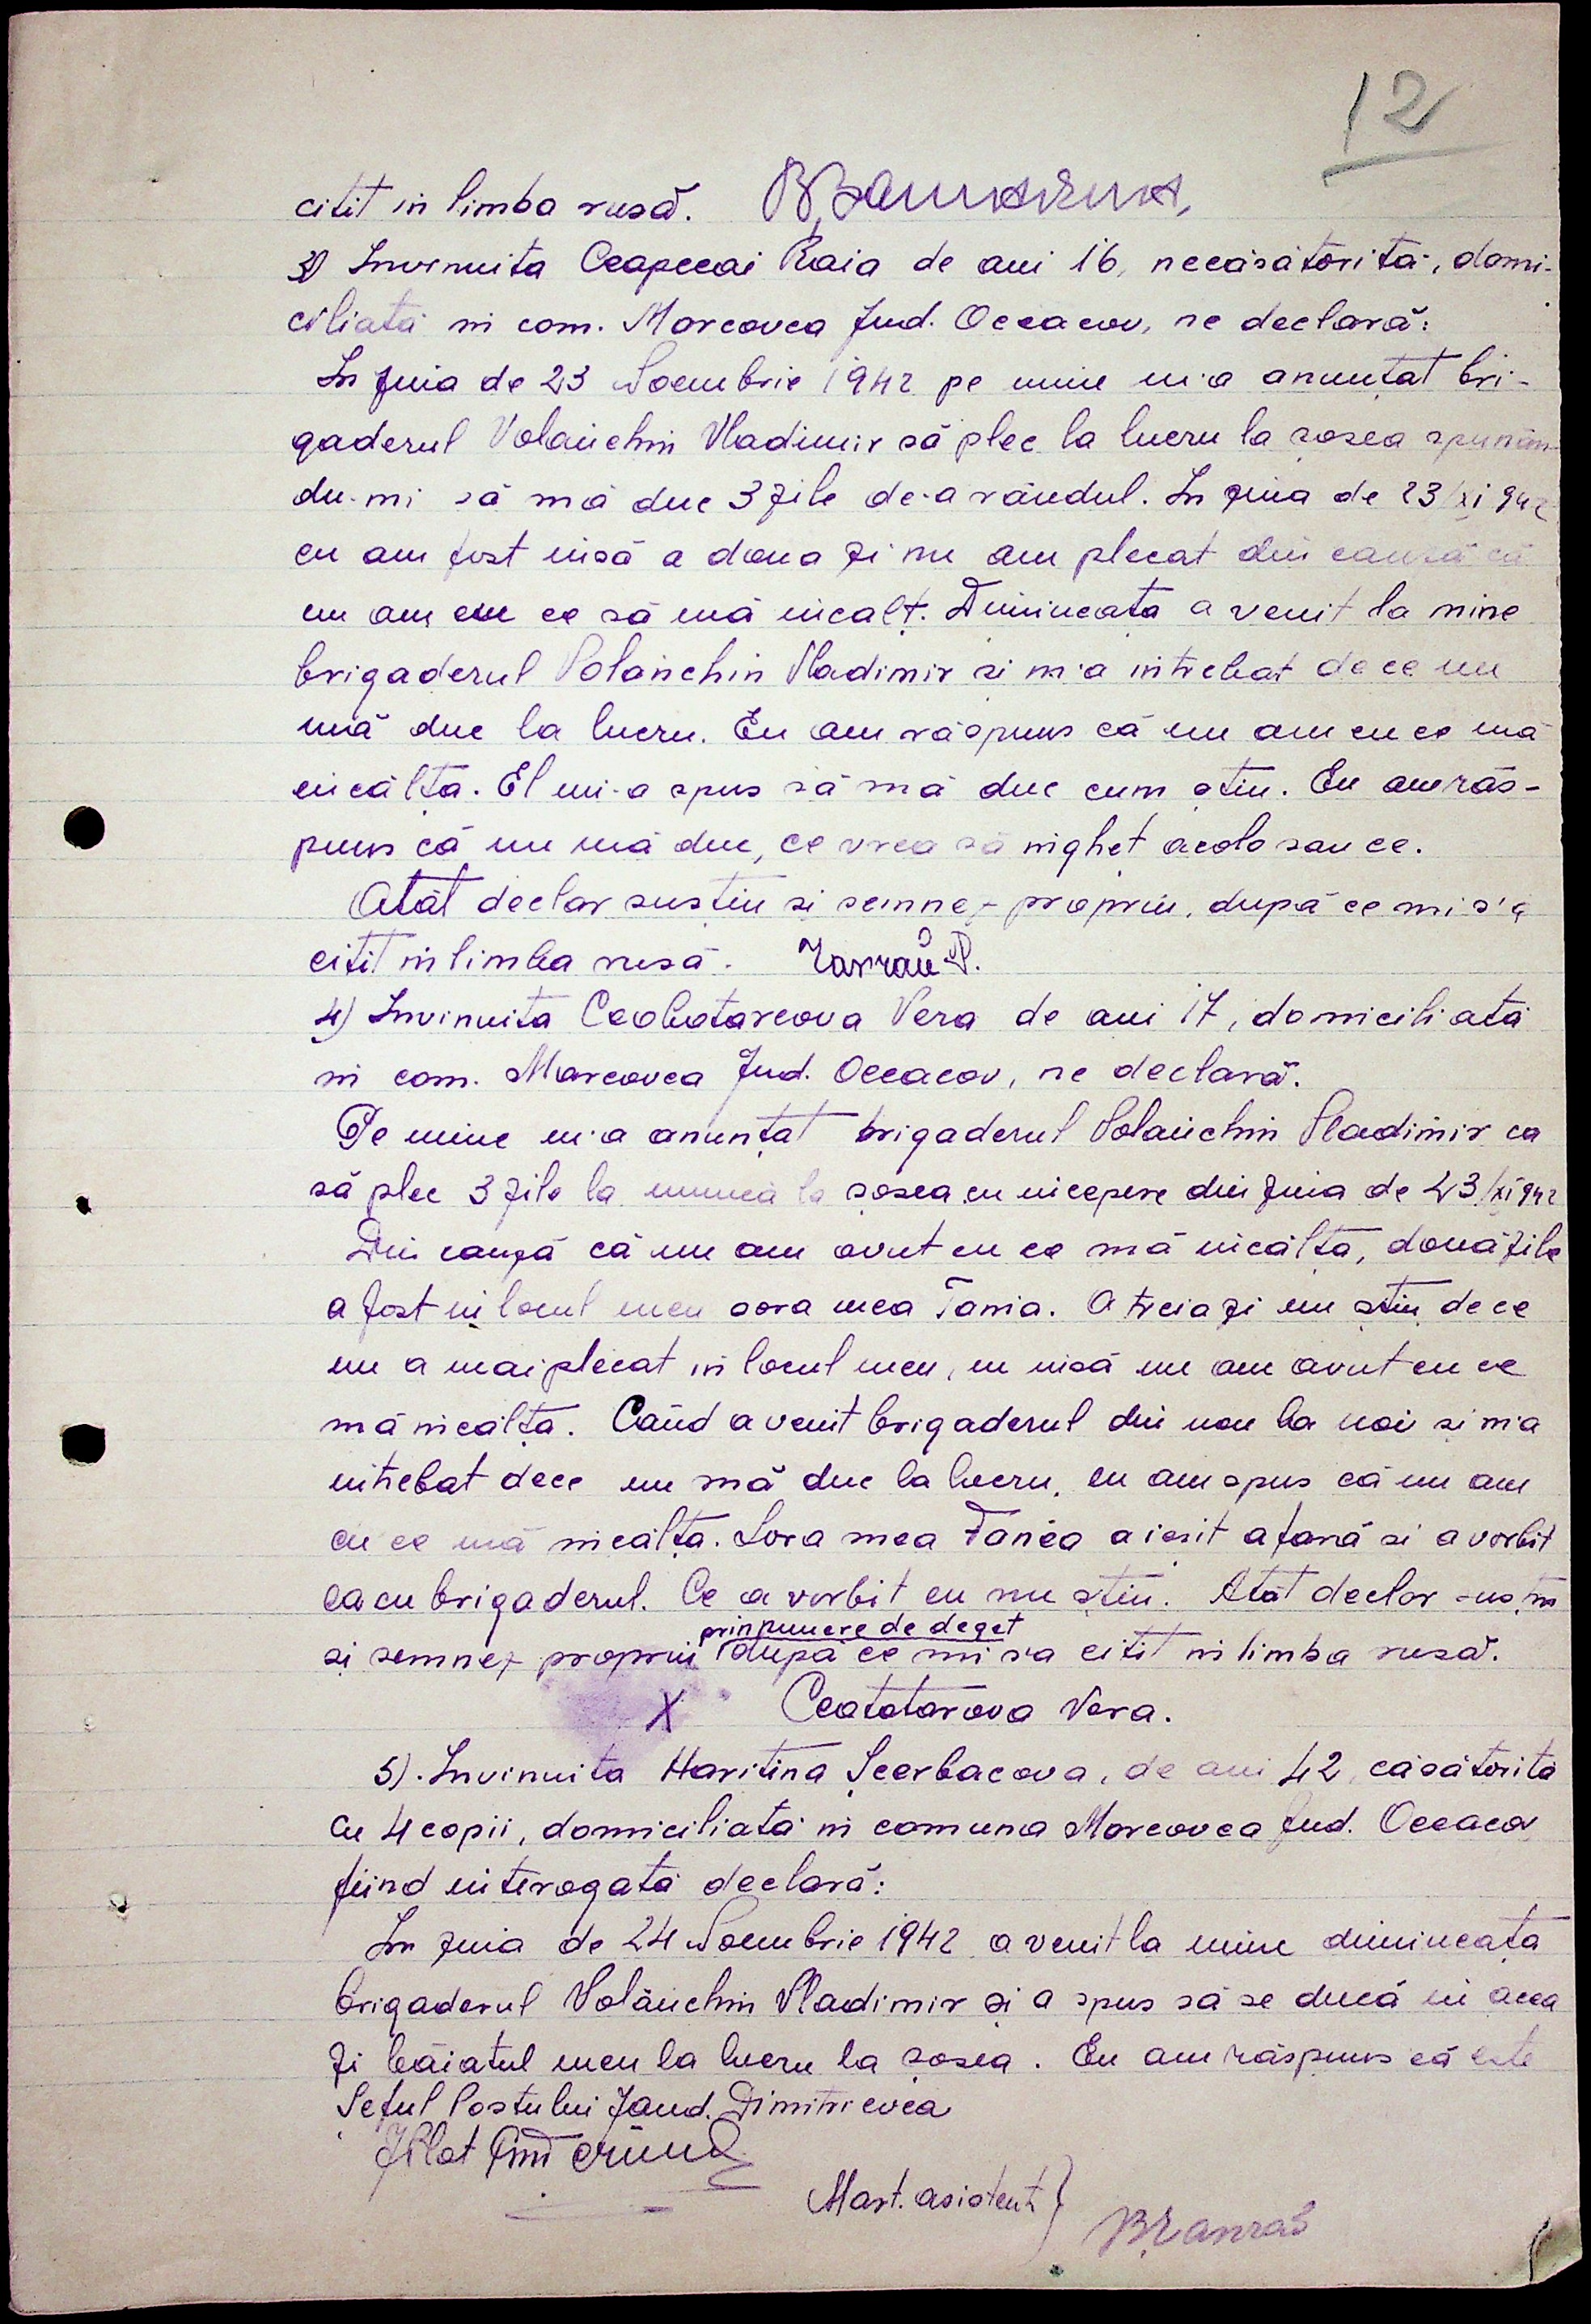 12
citit in limba rusă.
3) Invinuita Ceapceai Raia de ani 16, necăsătorită, domi-
ciliată in com. Marcovca Jud. Oceacov, ne declară:
In ziua de 23 Noembrie 1942 pe mine m'a anunțat bri-
gaderul Volanchin Vladimir să plec la lucru la șosea spunân-
du-mi să mă duc 3 zile de-a rândul. In ziua de 23/XI 942
eu am fost insă a doua zi nu am plecat din cauză că
nu am cu ce să mă incalț. Dimineata a venit la mine
brigaderul Volanchin Vladimir si m'a intrebat de ce nu
mă duc la lucru. Eu am răspuns că nu am cu ce mă
incălța. El mi-a spus să mă duc cum știu. Eu am răs-
puns că nu mă duc, ce vrea să inghet acolo sau ce.
Atât declar sustin si semnez propriu, după ce mi s'a
citit in limba rusă.
4) Invinuita Ceobotareova Vera de ani 17, domiciliată
in com. Marcovca Jud. Oceacov, ne declară.
Pe mine m'a anunțat brigaderul Volanchin Vladimir ca
să plec 3 zile la munca la șosea cu incepere din ziua de 23/XI 942
Din cauză că nu am avut cu ce mă incălța, două zile
a fost in locul meu sora mea Tania. A treia zi nu știu de ce
nu a mai plecat in locul meu, eu insă nu am avut cu ce
mă incălța. Când a venit brigaderul din nou la noi și m'a
intrebat dece nu mă duc la lucru, eu am spus că nu am
cu ce mă incălța. Sora mea Tanea a iesit afară si a vorbit
ea cu brigaderul. Ce a vorbit eu nu știu. Atât declar sustin
prin punere de deget
și semnez propriu după ce mi s'a citit in limba rusă.
X Ceatotarova Vera.
5). Invinuita Haritina Scerbacova, de ani 42, căsătorită
cu 4 copii, domiciliată in comuna Marcovca Jud. Oceacov
fiind interogată declară:
In ziua de 24 Noembrie 1942 a venit la mine dimineata
brigaderul Volanchin Vladimir și a spus să se ducă in acea
zi băiatul meu la lucru la șosea. Eu am răspuns că este
Seful Postului Jand. Dimitrievca
Mart. asistent }